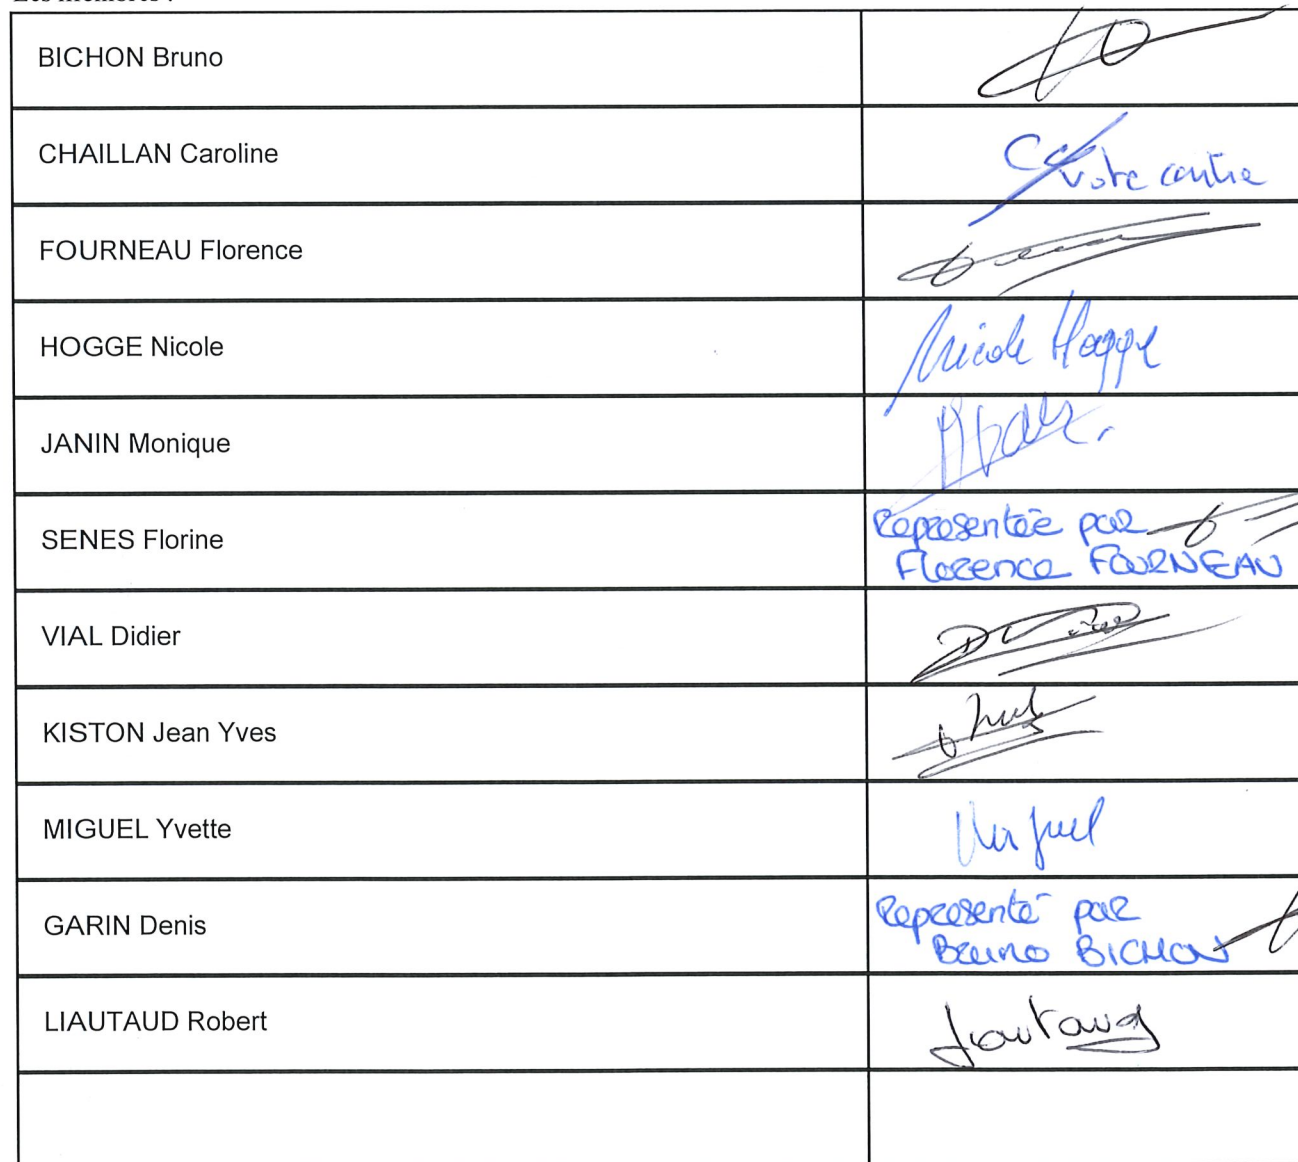 Les membres :
BICHON Bruno
CHAILLAN Caroline
vote contre
FOURNEAU Florence
HOGGE Nicole
Nicole Hogge
JANIN Monique
SENES Florine
Représentée par
Florence FOURNEAU
VIAL Didier
KISTON Jean Yves
MIGUEL Yvette
Miguel
GARIN Denis
Représenté par
Bruno BICHON
LIAUTAUD Robert
Liautaud